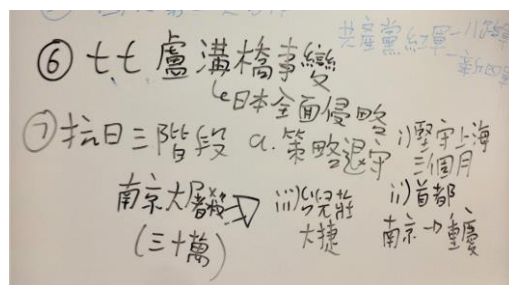 共產黨紅軍一八路軍
一新四軍
⑥ 七七盧溝橋事變
↳日本全面侵略
⑦抗日三階段 a. 策略退守
i)堅守上海
三個月
ii)首都
南京→重慶
iii)台兒莊
大捷
南京大屠殺
(三十萬)